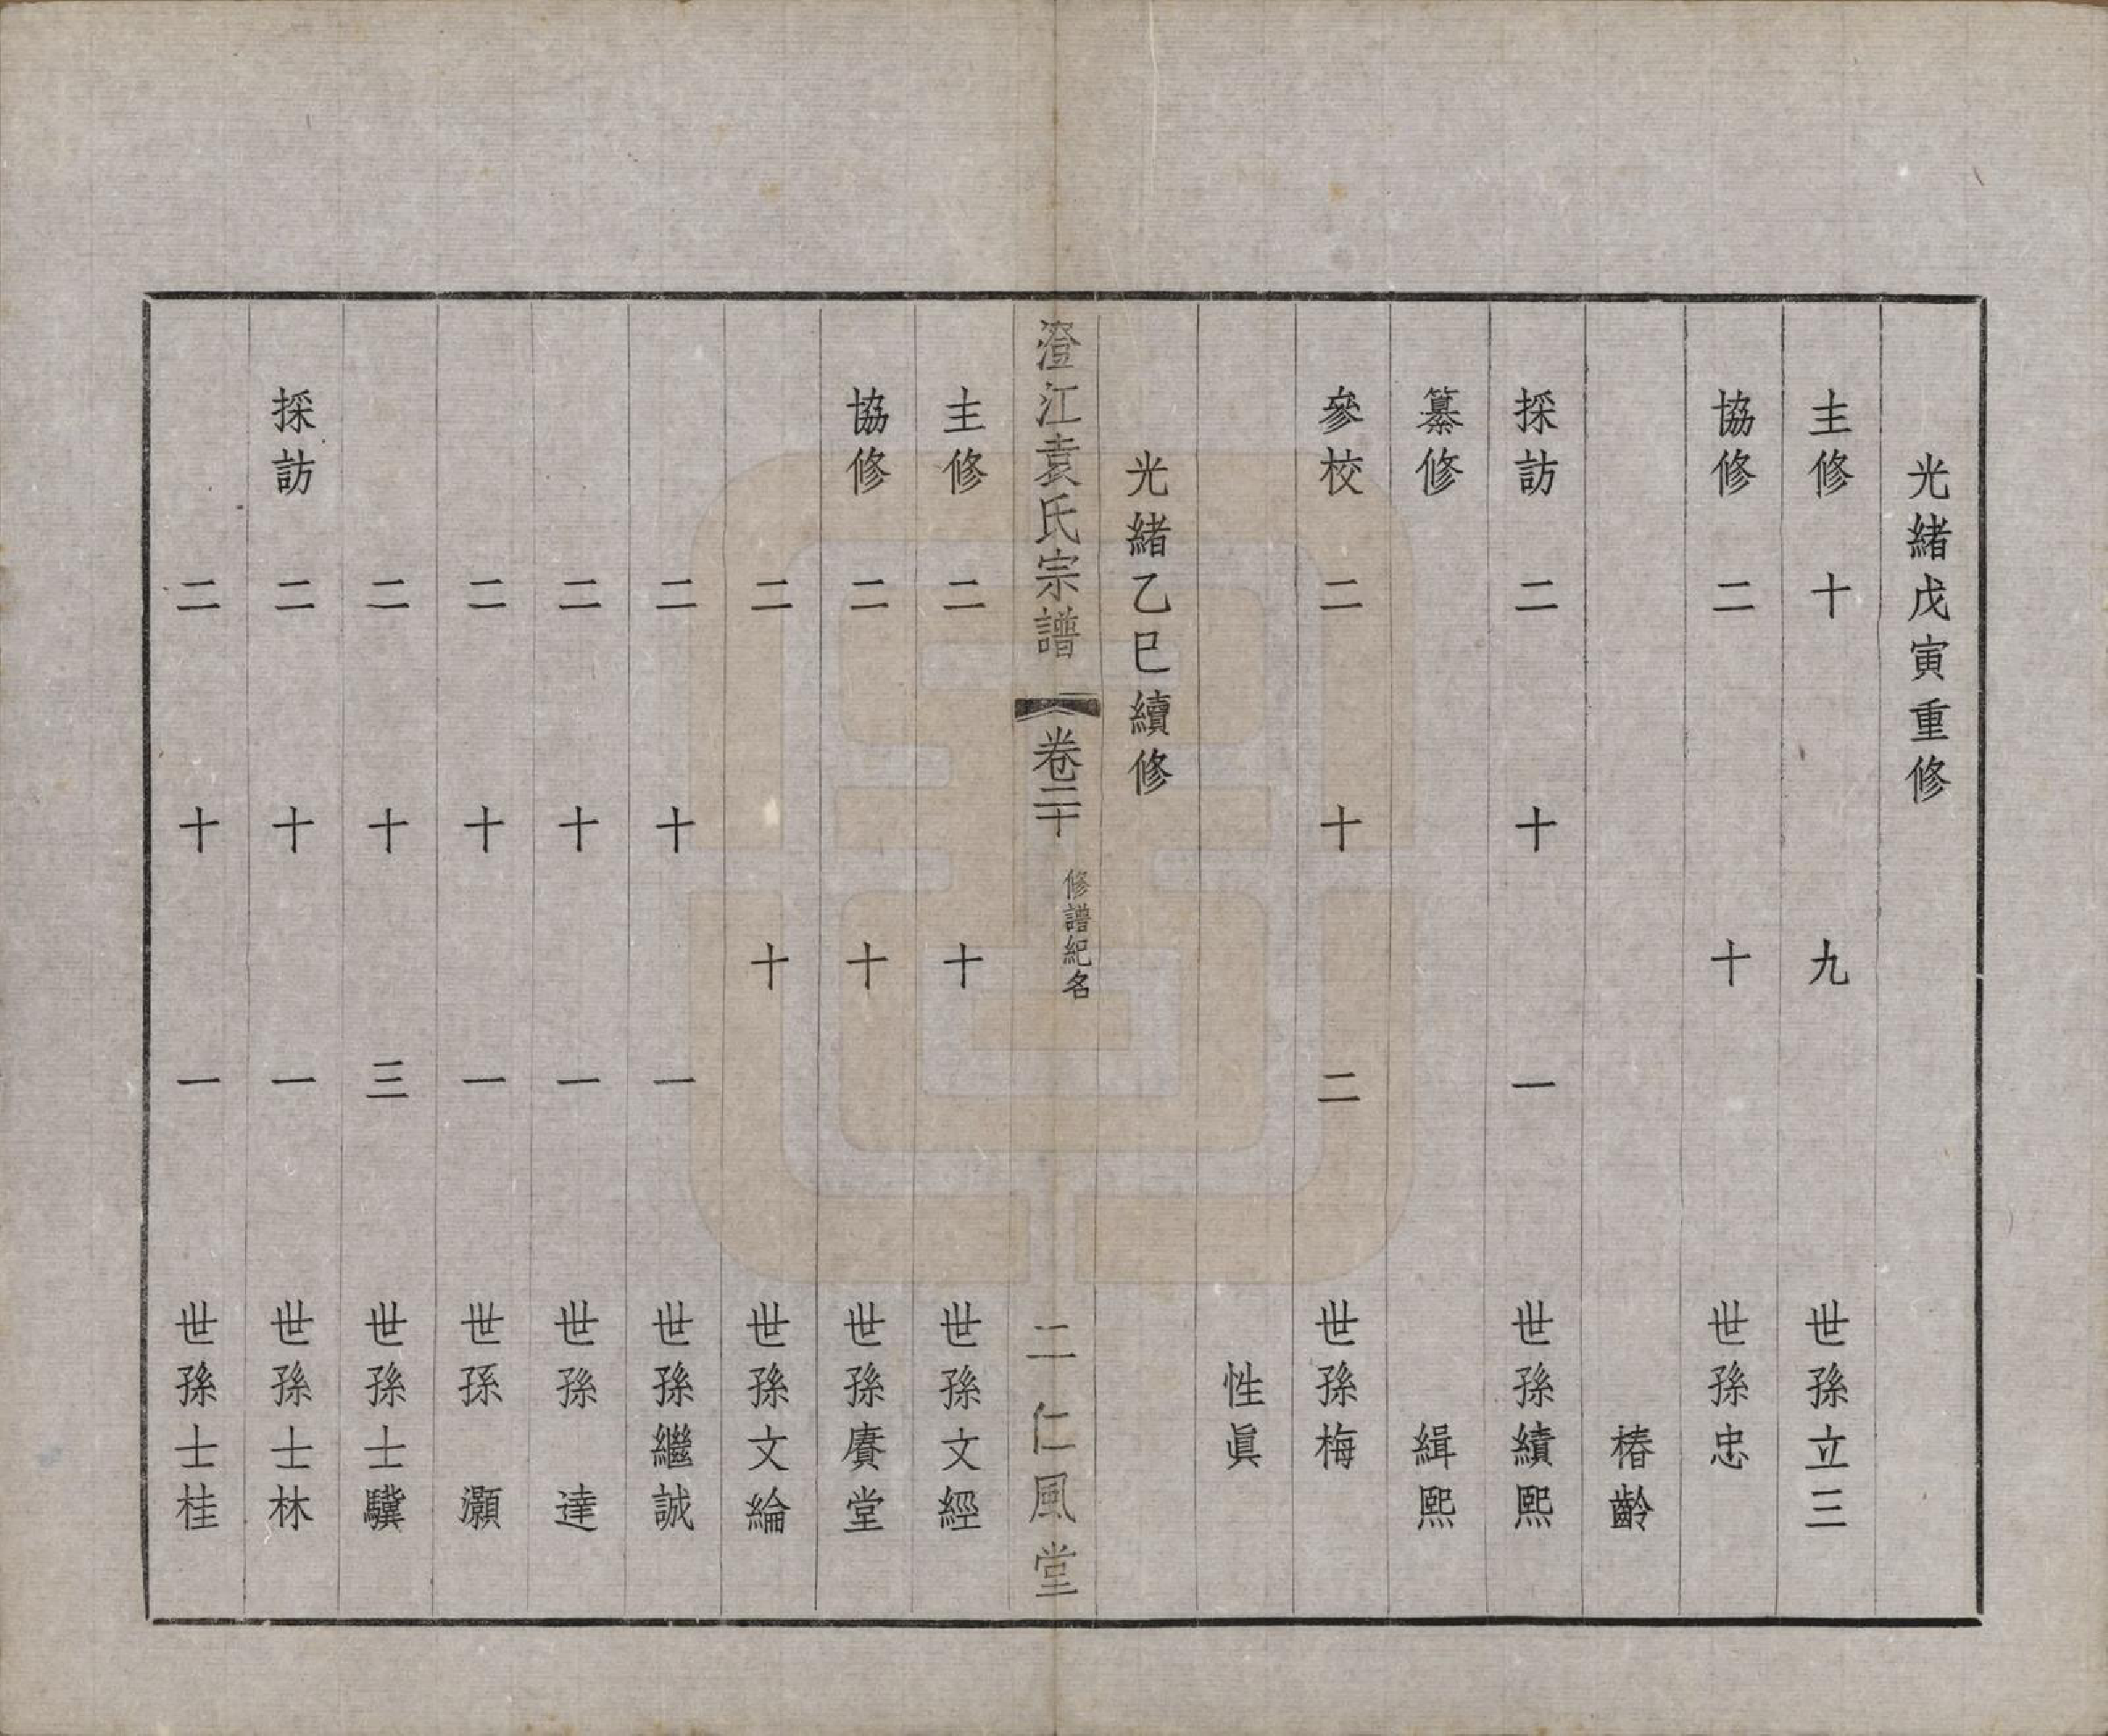 光緒戊寅重修
主修十九世孫立三
協修二十世孫忠
椿齡
採訪二十一世孫績熙
纂修緝熙
參校二十二世孫梅
性眞
光緒乙巳續修
澄江袁氏宗譜 卷二十 修譜紀名 二 仁風堂
主修二十世孫文經
協修二十世孫賡堂
二十世孫文綸
二十一世孫繼誠
二十一世孫達
二十一世孫灝
二十三世孫士驥
採訪二十一世孫士林
二十一世孫士桂